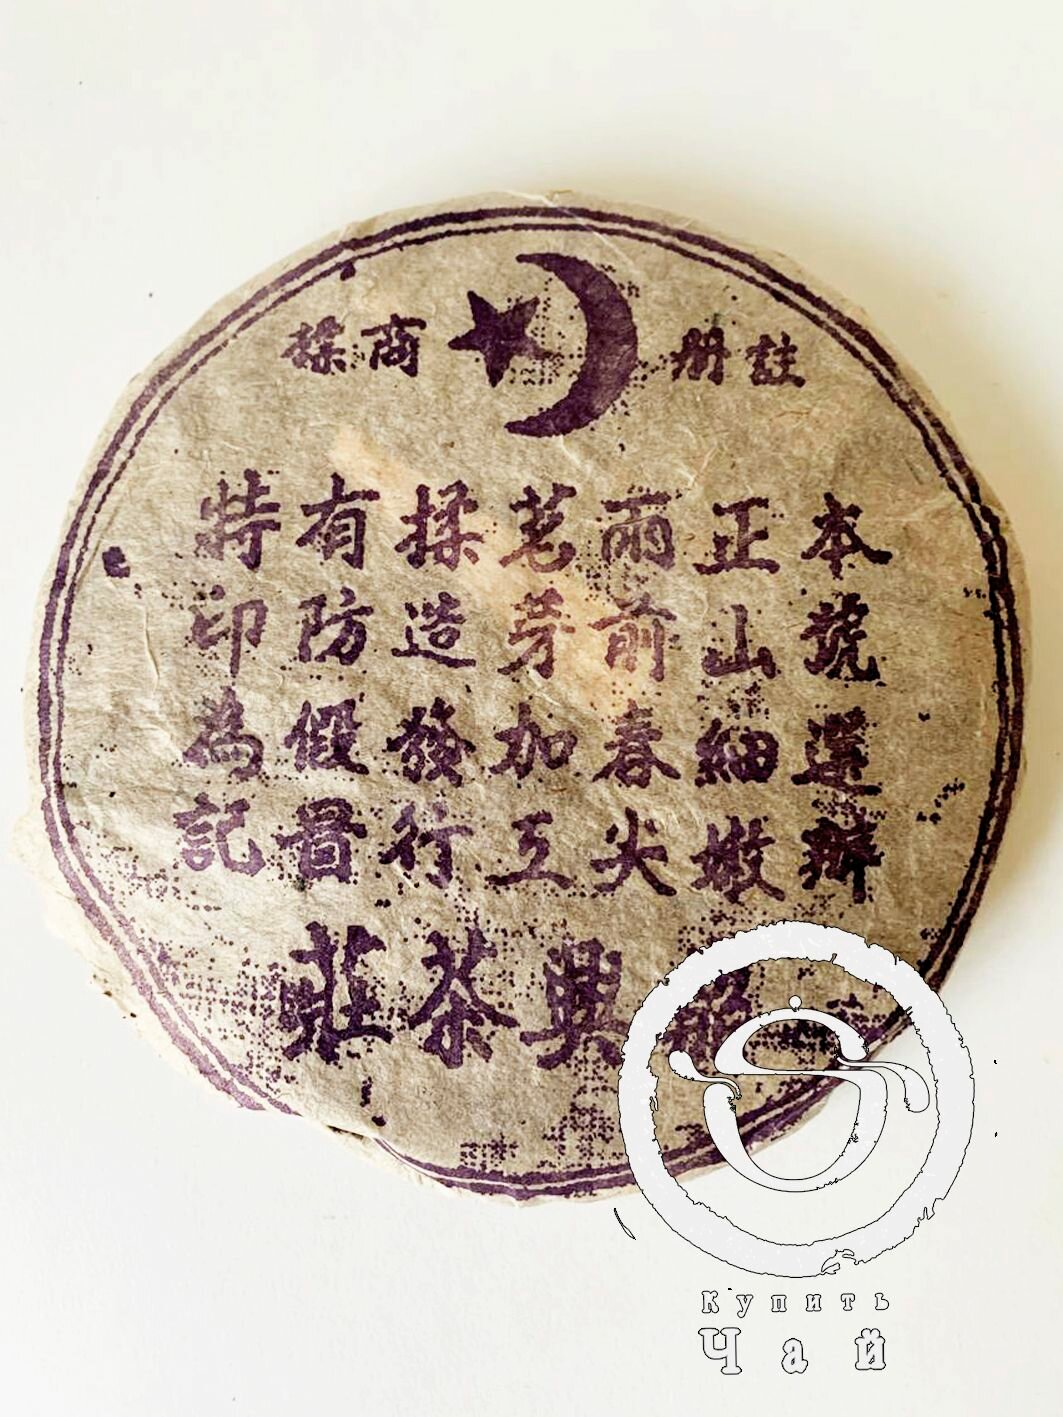 註册商標
本號選辦
正山細嫩
雨前春尖
茗芽加工
揉造發行
有防假冒
特印為記
興茶莊
Купить
Чай